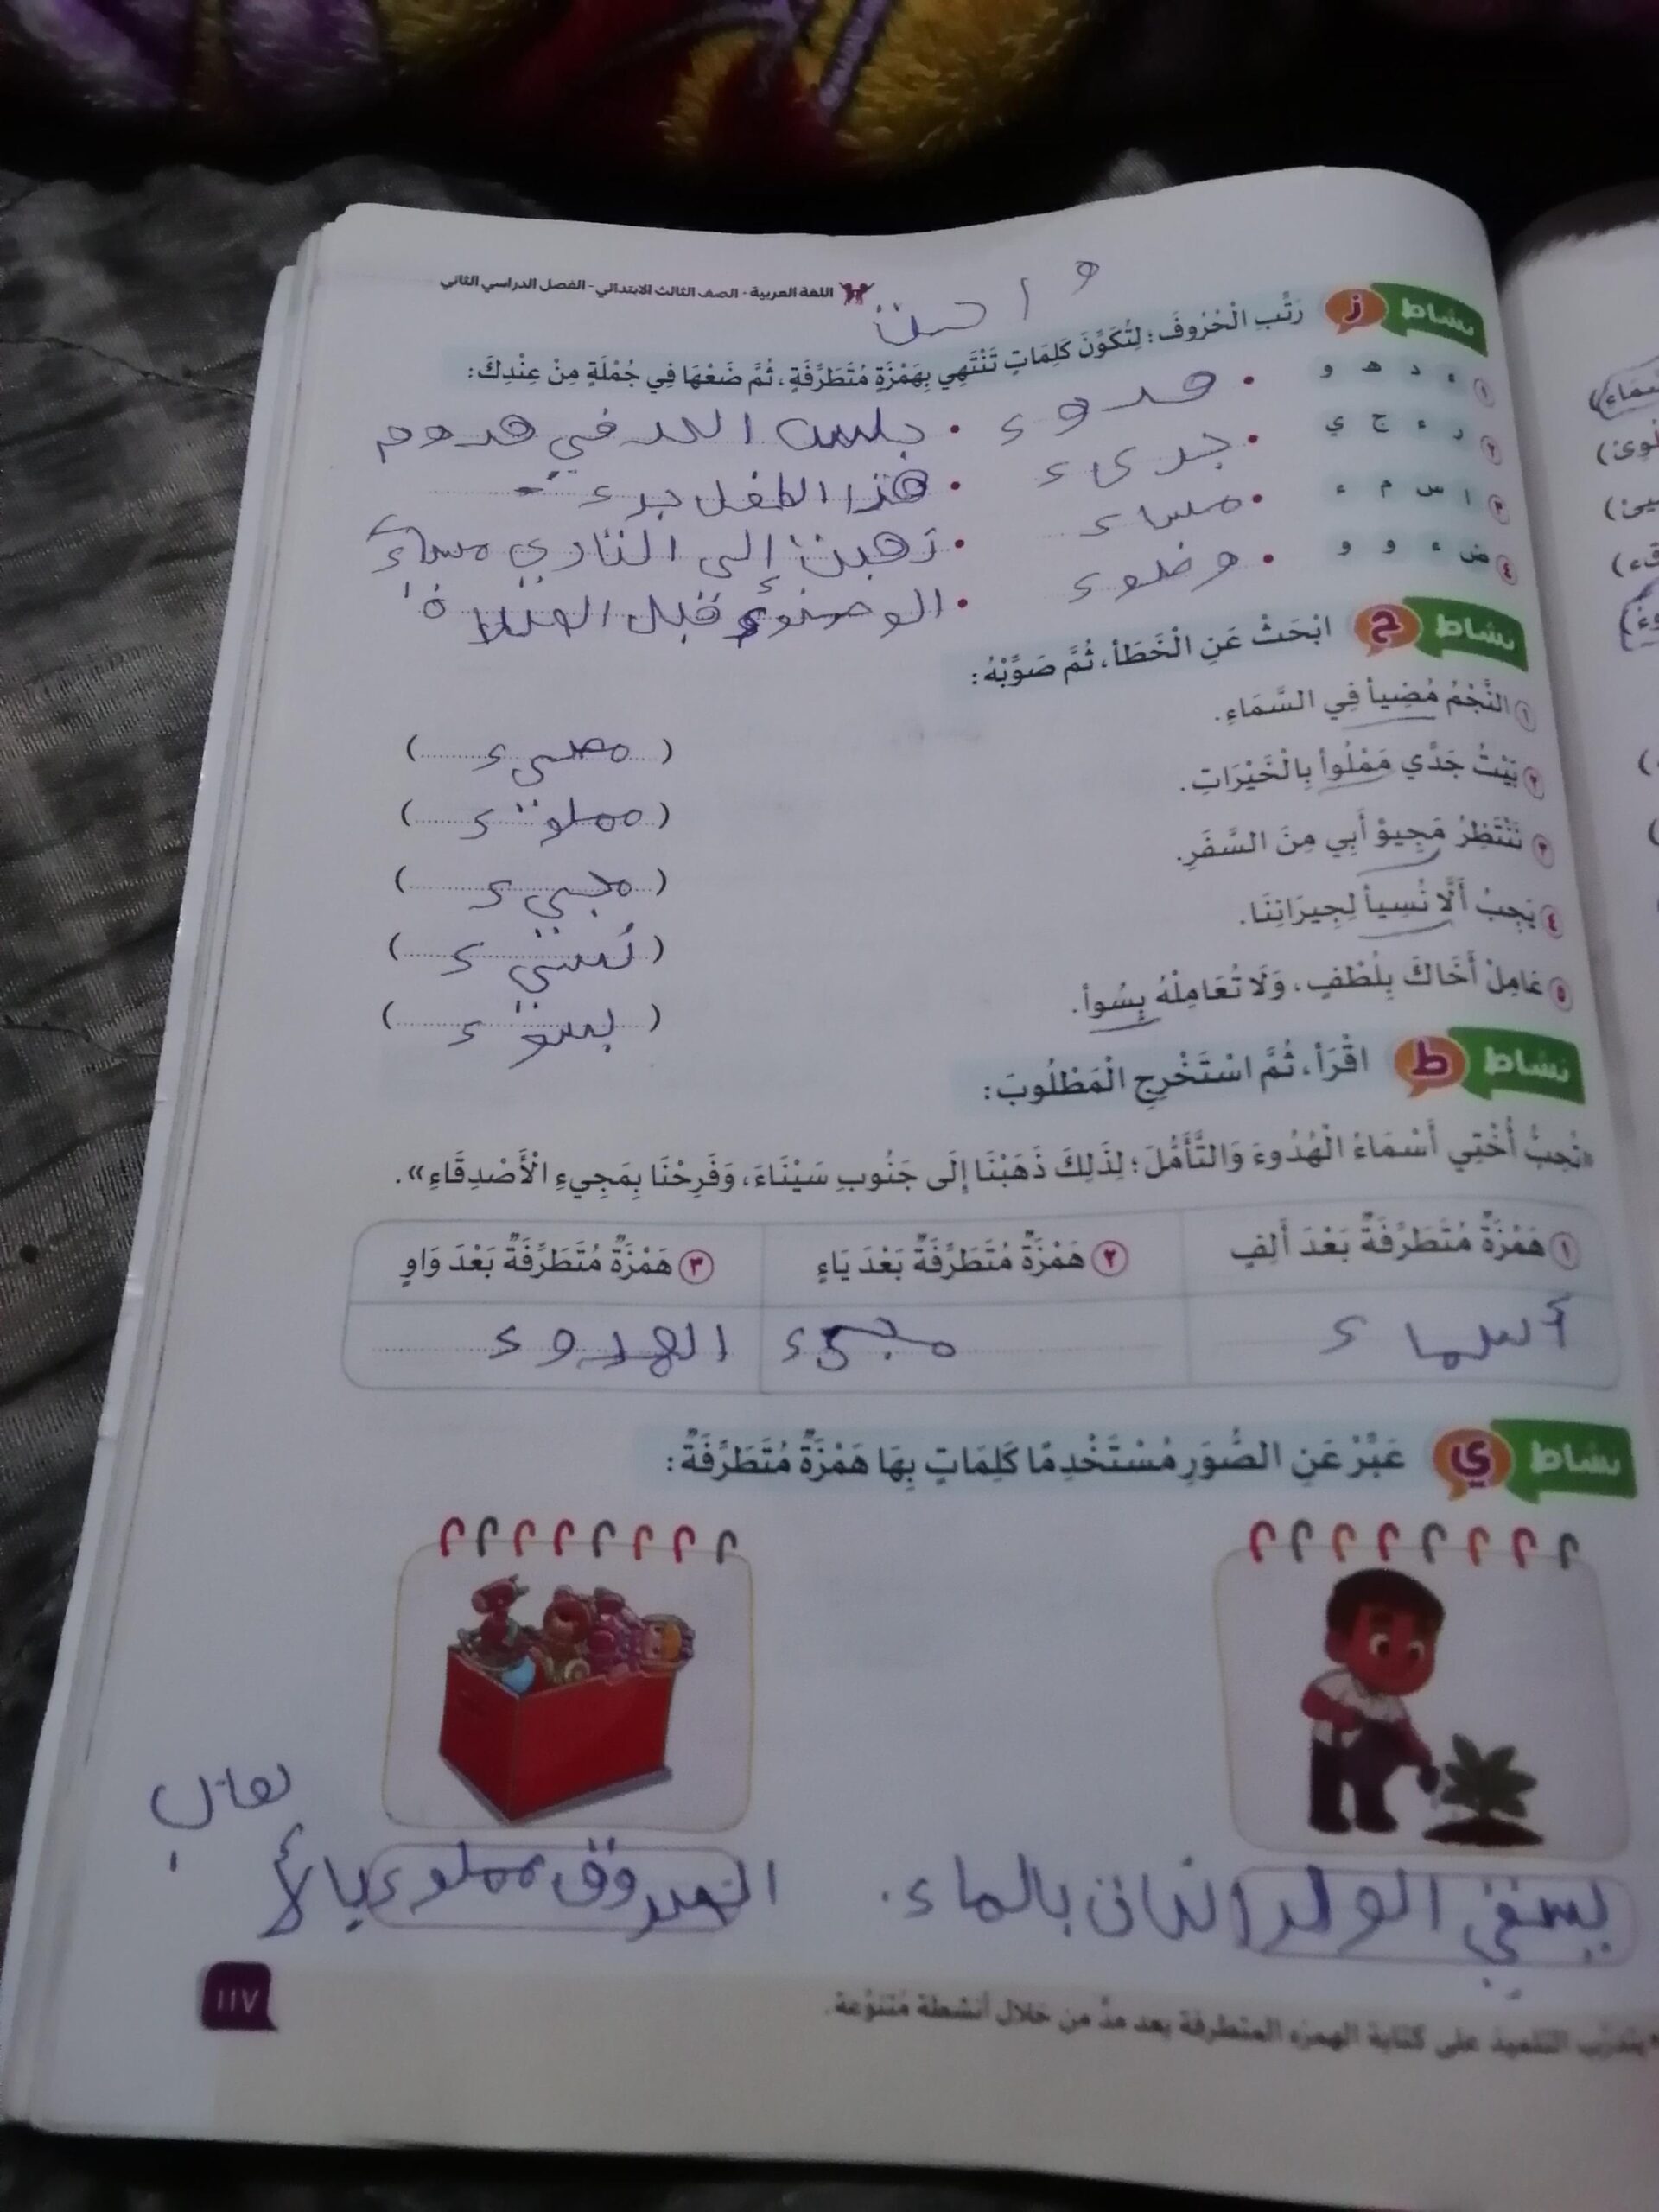 اللغة العربية - الصف الثالث الابتدائي - الفصل الدراسي الثاني
نشاط ز رَتِّبِ الْحُرُوفَ؛ لِتُكَوِّنَ كَلِمَاتٍ تَنْتَهِي بِهَمْزَةٍ مُتَطَرِّفَةٍ، ثُمَّ ضَعْهَا فِي جُمْلَةٍ مِنْ عِنْدِكَ:
١ ء د ه و • هدوء • في
٢ ر ء ج ي • جرىء • هذا الطفل جرء
٣ ا س م ء • مساء • ذهبت إلى النادي مساءً
٤ ض ء و و • وضوء • الوضوء قبل الصلاة
نشاط ح ابْحَثْ عَنِ الْخَطَأ، ثُمَّ صَوِّبْهُ:
١ النَّجْمُ مُضِيأ فِي السَّمَاءِ. (مضيء)
٢ بَيْتُ جَدِّي مَمْلُوأ بِالْخَيْرَاتِ. (مملوء)
٣ نَنْتَظِرُ مَجِيؤ أَبِي مِنَ السَّفَرِ. (مجيء)
٤ يَجِبُ أَلَّا نُسِيأ لِجِيرَانِنَا. (نسيء)
٥ عَامِلْ أَخَاكَ بِلُطْفٍ، وَلَا تُعَامِلْهُ بِسُوأ. (بسوء)
نشاط ط اقْرَأ، ثُمَّ اسْتَخْرِجِ الْمَطْلُوبَ:
«تُحِبُّ أُخْتِي أَسْمَاءُ الْهُدُوءَ وَالتَّأَمُّلَ؛ لِذَلِكَ ذَهَبْنَا إِلَى جَنُوبِ سَيْنَاءَ، وَفَرِحْنَا بِمَجِيءِ الْأَصْدِقَاءِ».
١ هَمْزَةٌ مُتَطَرِّفَةٌ بَعْدَ أَلِفٍ ٢ هَمْزَةٌ مُتَطَرِّفَةٌ بَعْدَ يَاءٍ ٣ هَمْزَةٌ مُتَطَرِّفَةٌ بَعْدَ وَاوٍ
أسماء مجىء الهدوء
نشاط ي عَبِّرْ عَنِ الصُّوَرِ مُسْتَخْدِمًا كَلِمَاتٍ بِهَا هَمْزَةٌ مُتَطَرِّفَةٌ:
يسقي الولد النبات بالماء.
الصندوق مملوء بالأ
لعاب
يتدرب التلميذ على كتابة الهمزة المتطرفة بعد مدٍّ من خلال أنشطة متنوعة.
١١٧